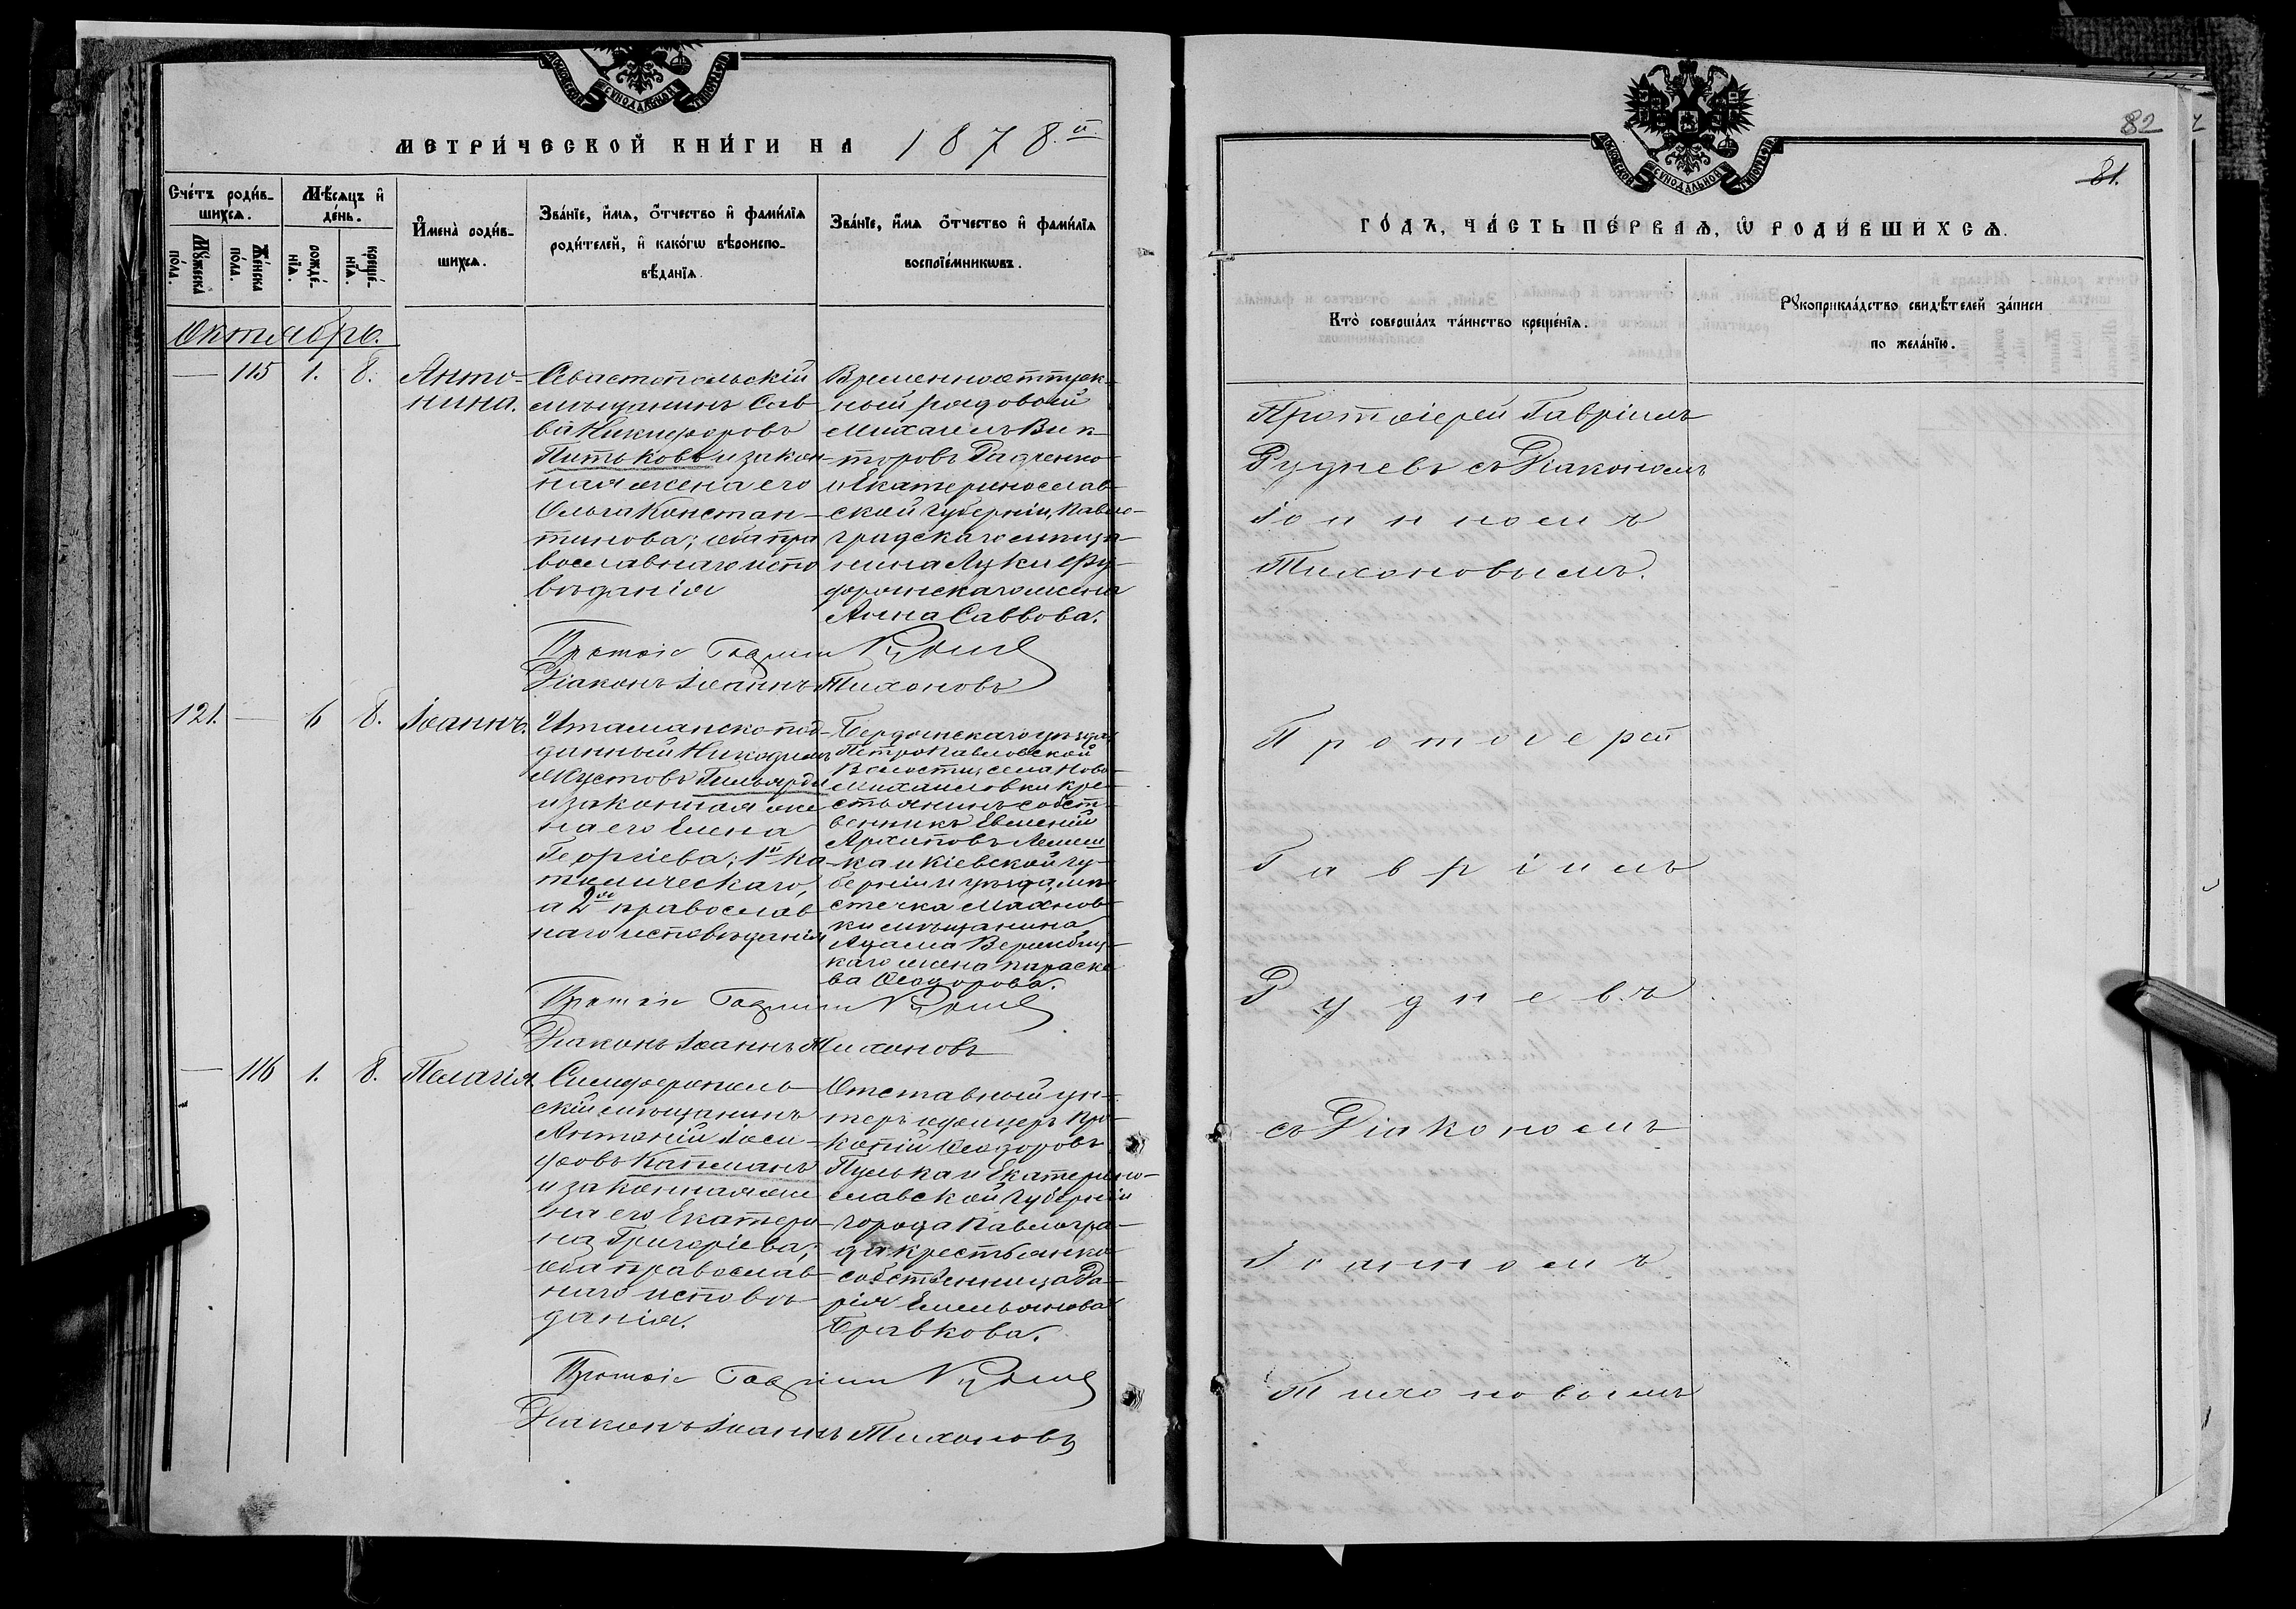 МОСКОВСКОЙ СУНОДАЛЬНОЙ ТИПОГРАФІИ
МЕТРИ́ЧЕСКОЙ КНИ́ГИ НА 1878й
Сче́тъ роди́в-
шихсѧ.
Мѣ́сѧцъ и҆
де́нь.
И҆мена̀ роди́в-
шихсѧ.
Зва́нїе, и҆́мѧ, ѻ҆́тчество и҆ фами́лїѧ
роди́телей, и҆ како́гѡ вѣроиспо-
вѣ́данїѧ.
Зва́нїе, и҆́мѧ ѻ҆́тчество и҆ фами́лїѧ
воспрїе́мникѡвъ.
Мꙋ́жеска
по́ла.
Же́нска
по́ла.
рожде́-
нїѧ.
креще́-
нїѧ.
Октябрь.
— 115 1. 8.
Анто-
нина.
Севастопольскій
мѣщанинъ Сав
ва Никифоровъ
Питьковъ и закон
ная жена его
Ольга Констан-
тинова; оба пра
вославнаго испо
вѣданія
Временно отпуск-
ной рядовой
Михаилъ Вик-
торовъ
и Екатеринослав-
ской губерніи, Павло-
градскаго мѣща-
нина Луки
жена
Анна Саввова.
Протоіе Гавріил Руднев
Діаконъ Іоаннъ Тихоновъ
121. — 6 8.
Іоаннъ.
Итальянско-под-
данный Никодимъ
Августовъ Гильярди
и законная же
на его Елена
Георгіева; 1й ка-
толическаго,
а 2я православ
наго исповѣданія
Бердянскаго уѣзда
Петропавловской
Волости, села Ново-
Михайловки кре-
стьянинъ собст-
венникъ Евменій
Архиповъ
ка и Кіевской гу-
берніи и уѣзда, мѣ-
стечка Махнов-
ки мѣщанина
Адама
каго жена Параске-
ва Ѳеодорова.
Протоіе Гавріил Руднев
Діаконъ Іоаннъ Тихоновъ
— 116 1. 8.
Пелагія
Симферополь-
скій мѣщанинъ
Антоній Іоси-
фовъ Капланъ
и законная же
на его Екатери-
на Григоріева;
оба православ-
наго исповѣ-
данія.
Отставной ун-
теръ офицеръ Про-
копій Ѳеодоровъ
Пулька и Екатерино-
славской губерніи
города Павлогра-
да крестьянка
собственница Да-
рія Емельянова
Бравкова.
Протоіе Гавріил Руднев
Діаконъ Іоаннъ Тихоновъ
82
81.
МОСКОВСКОЙ СУНОДАЛЬНОЙ ТИПОГРАФІИ
ГО́ДЪ, ЧА́СТЬ ПЕ́РВАѦ, Ѡ҆ РОДИ́ВШИХСѦ.
Кто̀ соверша́лъ та́инство креще́нїѧ.
Рꙋкоприкла́дство свидѣ́телей за́писи
по жела́нїю.
Протоіерей Гавріилъ
Рудневъ съ Діакономъ
Іоанномъ
Тихоновымъ.
Протоіерей
Гавріилъ
Рудневъ
съ Діакономъ
Іоанномъ
Тихоновымъ